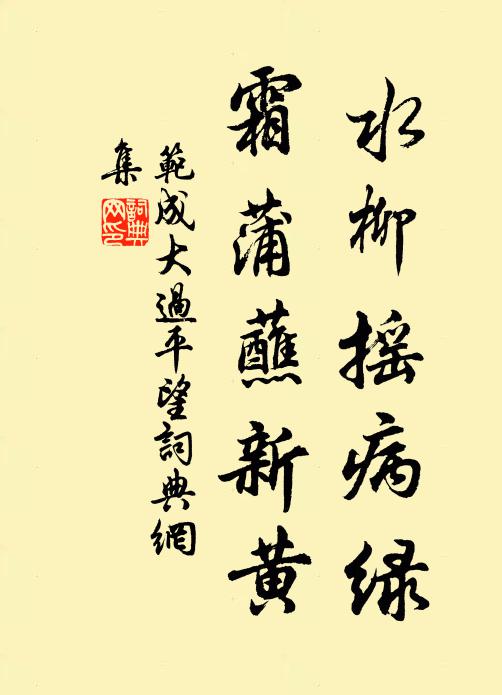 水柳摇病绿
霜蒲蘸新黄
範成大過平望詞典網
集
詞典
网印